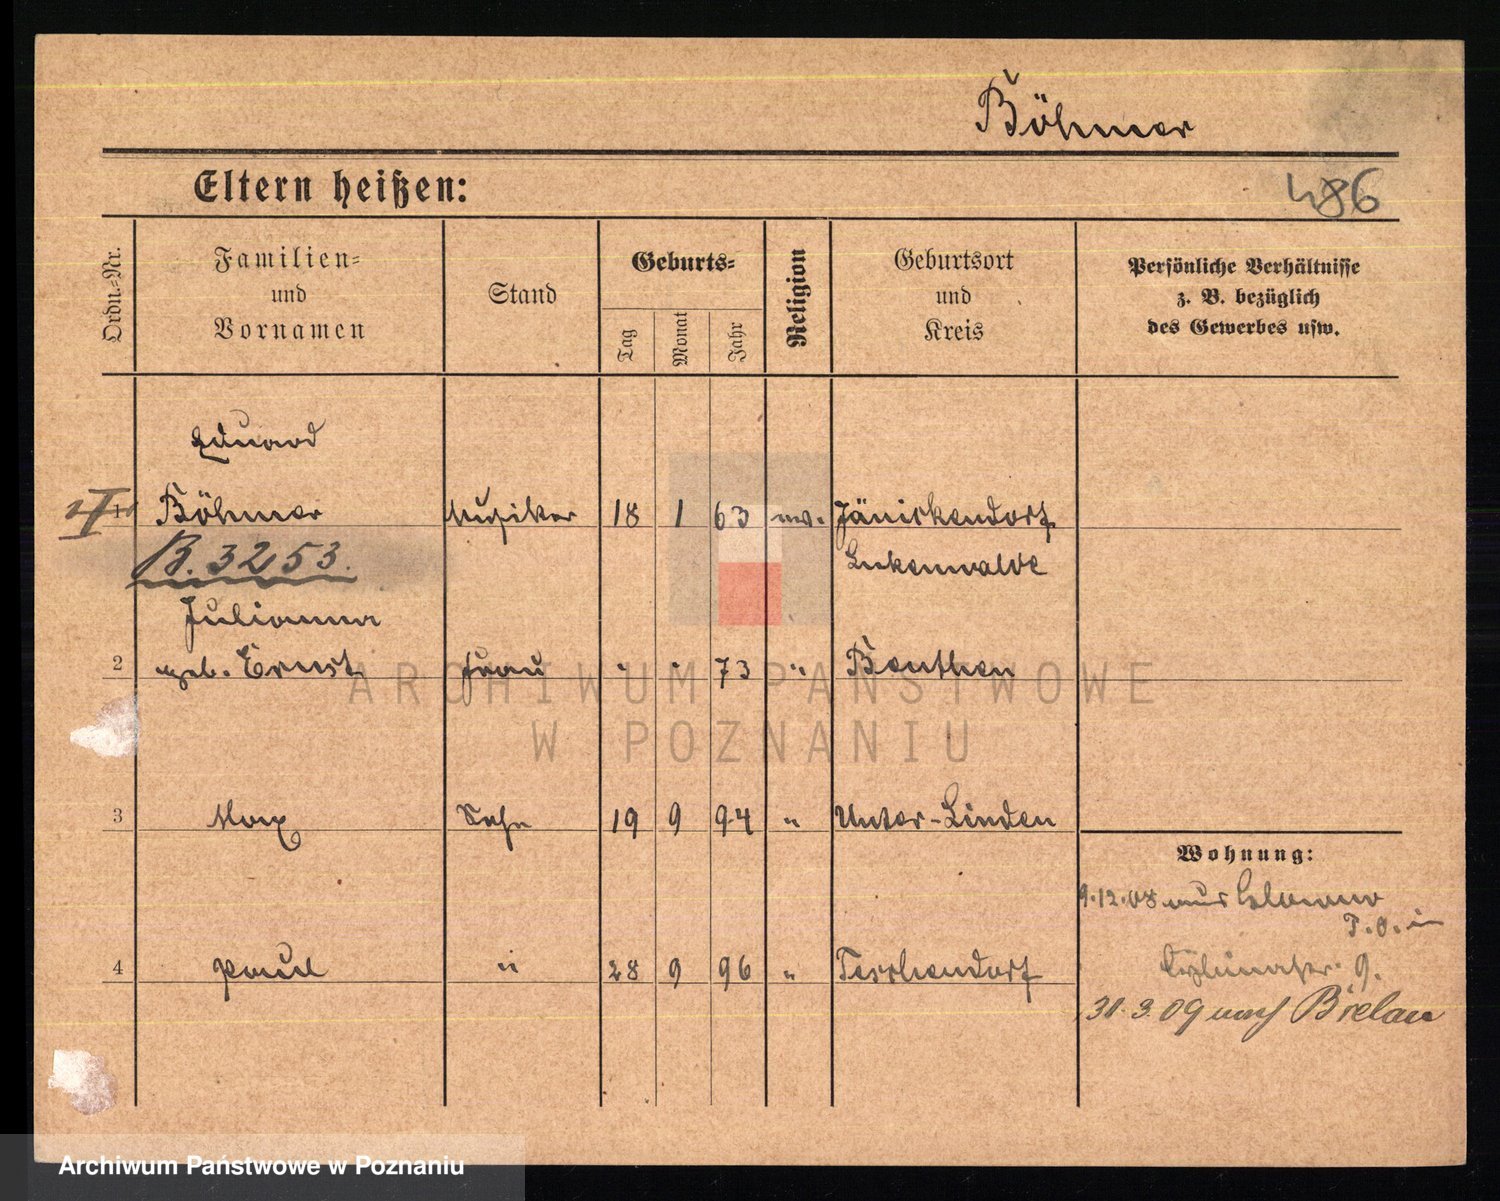 Böhmer
Eltern heißen:
486
Ordn.-Nr.
Familien-
und
Vornamen
Stand
Geburts-
Tag
Monat
Jahr
Religion
Geburtsort
und
Kreis
Persönliche Verhältnisse
z. B. bezüglich
des Gewerbes usw.
Eduard
1 Böhmer Musiker 18 1 63 ev. Jänickendorf
B. 3253. Lukenwalde
Julianna
2 geb. Ernst Frau " " 73 " Beuthen
3 Max Sohn 19 9 94 " Unter-Linden
Wohnung:
9.12.08 aus
P. O. in
4 Paul " 28 9 96 " Teschendorf
9.
31.3.09 nach
ARCHIWUM PAŃSTWOWE
W POZNANIU
Archiwum Państwowe w Poznaniu